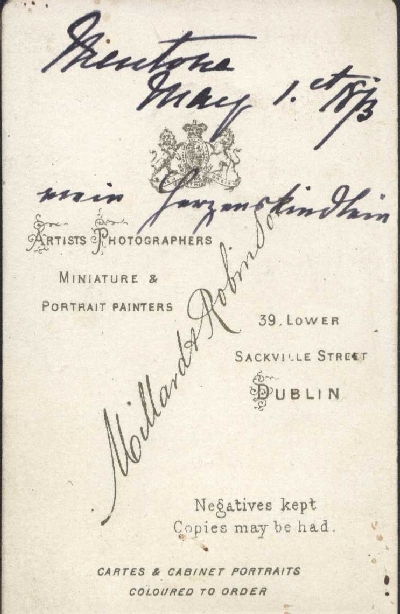 Mentone
May 1.st 1873
mein Herzenskindlein
ARTISTS PHOTOGRAPHERS
MINIATURE &
PORTRAIT PAINTERS
Millard & Robinson
39. LOWER
SACKVILLE STREET
DUBLIN
Negatives kept
Copies may be had.
CARTES & CABINET PORTRAITS
COLOURED TO ORDER